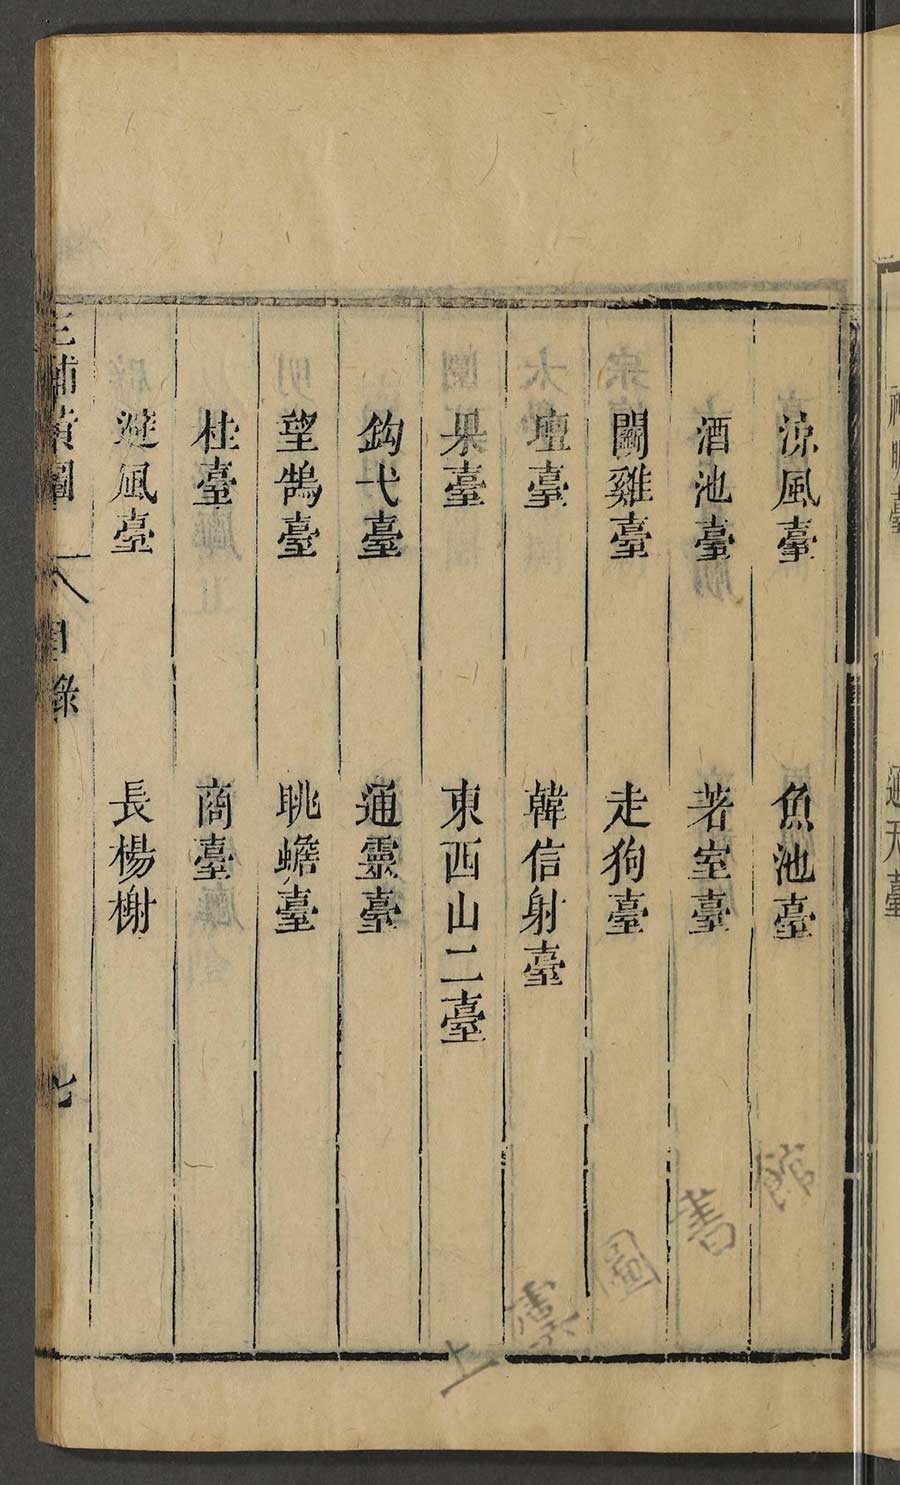 涼風臺　魚池臺
酒池臺　著室臺
鬭雞臺　走狗臺
壇臺　韓信射臺
果臺　東西山二臺
鈎弋臺　通靈臺
望鵠臺　眺蟾臺
桂臺　商臺
避風臺　長楊榭
三輔黃圖　目錄　七
書圖館